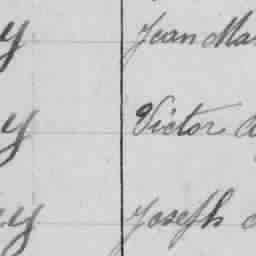 y Jean Ma
y Victor A
ey Joseph